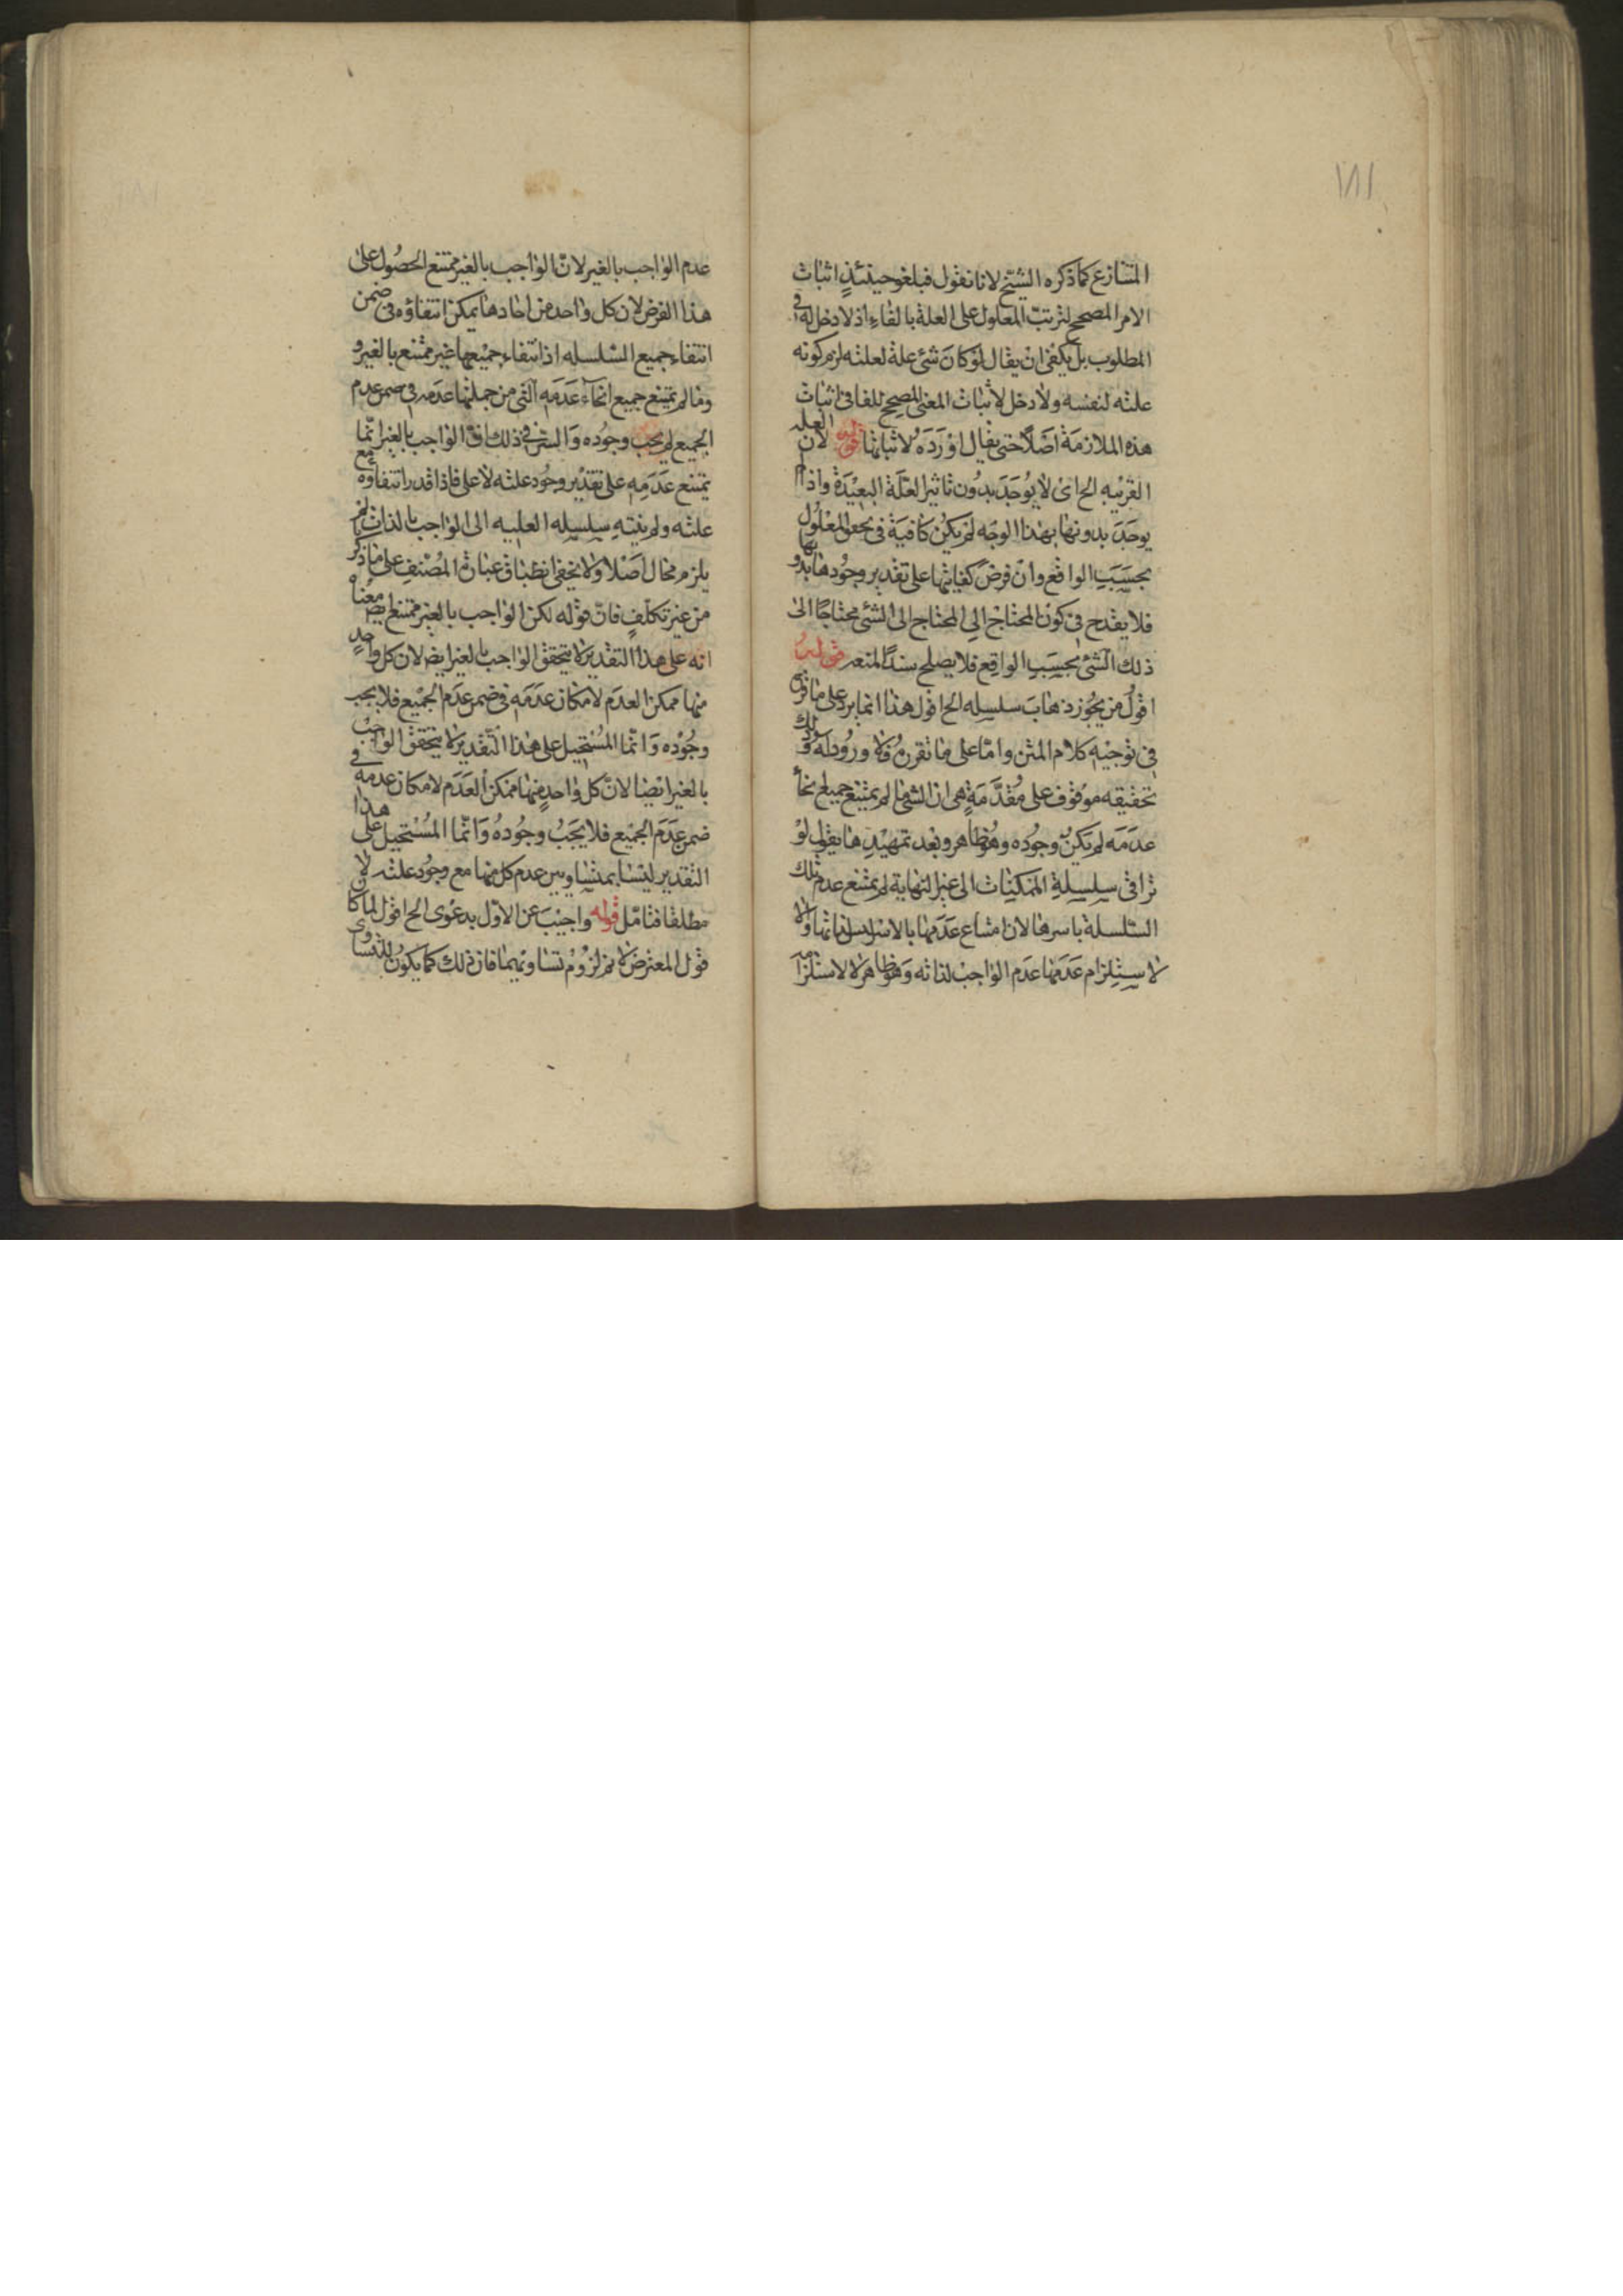 ١٨١
المتنازع كما ذكره الشيخ لانا نقول فيلغو حينئذٍ اثبات
الامر المصحح لترتب المعلول على العلة بالفاء اذ لا دخل له في
المطلوب بل يكفى ان يقال لو كان شئ علة لعلته لزم كونه
علته لنفسه ولا دخل لاثبات المعنى المصحح للفا فى اثبات
هذه الملازمة اصلا حتى يقال اورده لاثباتها قوله لان العلة
القريبه الخ اى لا يوجد بدون تاثير العلة البعيدة واذا لم
يوجد بدونها بهذا الوجه لم يكن كافية فى تحقق المعلول
بحسب الواقع وان فرض كفايتها على تقدير وجودها بدونها
فلا يقدح فى كون المحتاج الى المحتاج الى الشئ محتاجا الى
ذلك الشئ بحسب الواقع فلا يصلح سندا لمنعه قوله
اقول من يجوز ذهاب سلسله الخ اقول هذا انما يرد على ما قرره
فى توجيه كلام المتن واما على ما نقرره فلا ورود له وذلك
تحقيقه موقوف على مقدمة هى ان الشئ ما لم يمتنع جميع انحاء
عدمه لم يكن وجوده وهو ظاهر وبعد تمهيدها يقول لو
ترافى سلسلة الممكنات الى غير النهاية لم يمتنع عدم تلك
السلسلة باسرها لان امتناع عدمها بالاسر ليس لذاتها ولا
لاستلزام عدمها عدم الواجب لذاته وهو ظاهر ولا لاستلزامه
عدم الواجب بالغير لان الواجب بالغير ممتنع الحصول على
هذا الفرض لان كل واحد من احادها يمكن انتفاؤه فى ضمن
انتفاء جميع السلسله اذ انتفاء جميعها غير ممتنع بالغير و
وما لم يمتنع جميع انحاء عدمه التى من جملتها عدمه فى ضمن عدم
الجميع لم يجب وجوده والسر فى ذلك ان الواجب بالغير انما
يمتنع عدمه على تقدير وجود علته لا على فاذا قدر انتفاوه مع
علته ولم ينته سلسله العليه الى الواجب بالذات لم
يلزم محال اصلا ولا يخفى انطباق عبارة المصنف على ما ذكر
من غير تكلف فان قوله لكن الواجب بالغير ممتنع ايض معناه
انه على هذا التقدير لا يتحقق الواجب بالغير ايض لان كل واحد
منها ممكن العدم لامكان عدمه فى ضمن عدم الجميع فلا يجب
وجوده وانما المستحيل على هذا التقدير لا يتحقق الواجب
بالغير ايضا لان كل واحد منها ممكن العدم لامكان عدمه في
ضمن عدم الجميع فلا يجب وجوده وانما المستحيل على هذا
التقدير ليتسا بمتساويين عدم كل منها مع وجود علته لان
مطلقا فتامل قوله واجيب عن الاول بدعوى الخ اقول لما كا
قول المعترض لا نم لزوم تساويهما فان ذلك كما يكون للتساوى